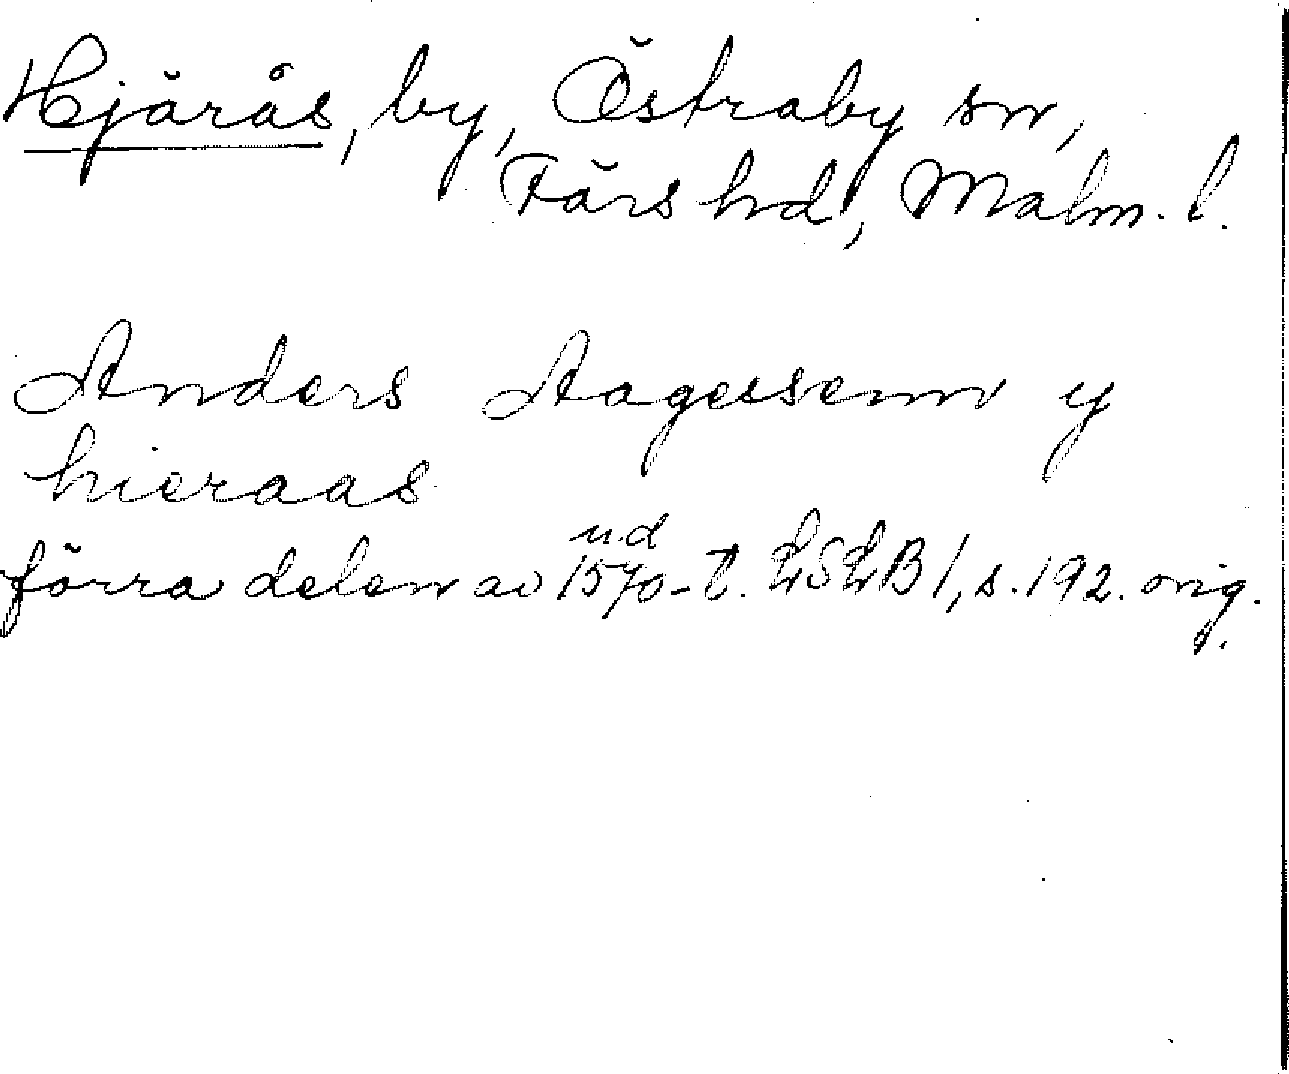 Hjärås, by, Östraby sn,
Färs hd, Malm. l.
Anders Aagessenn y
hieraas
u.d
förra delen av 1570-t. LSLB 1, s. 192. orig.